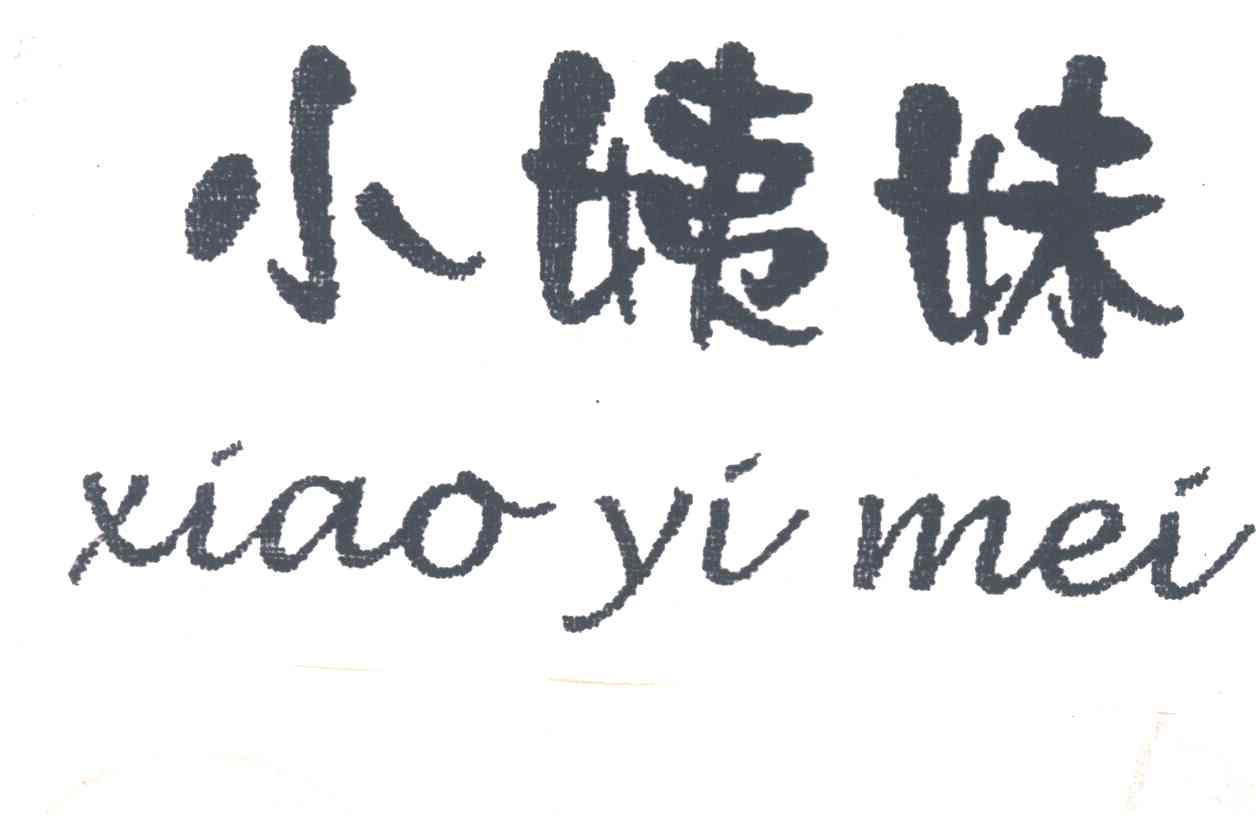 小姨妹
xiao yi mei